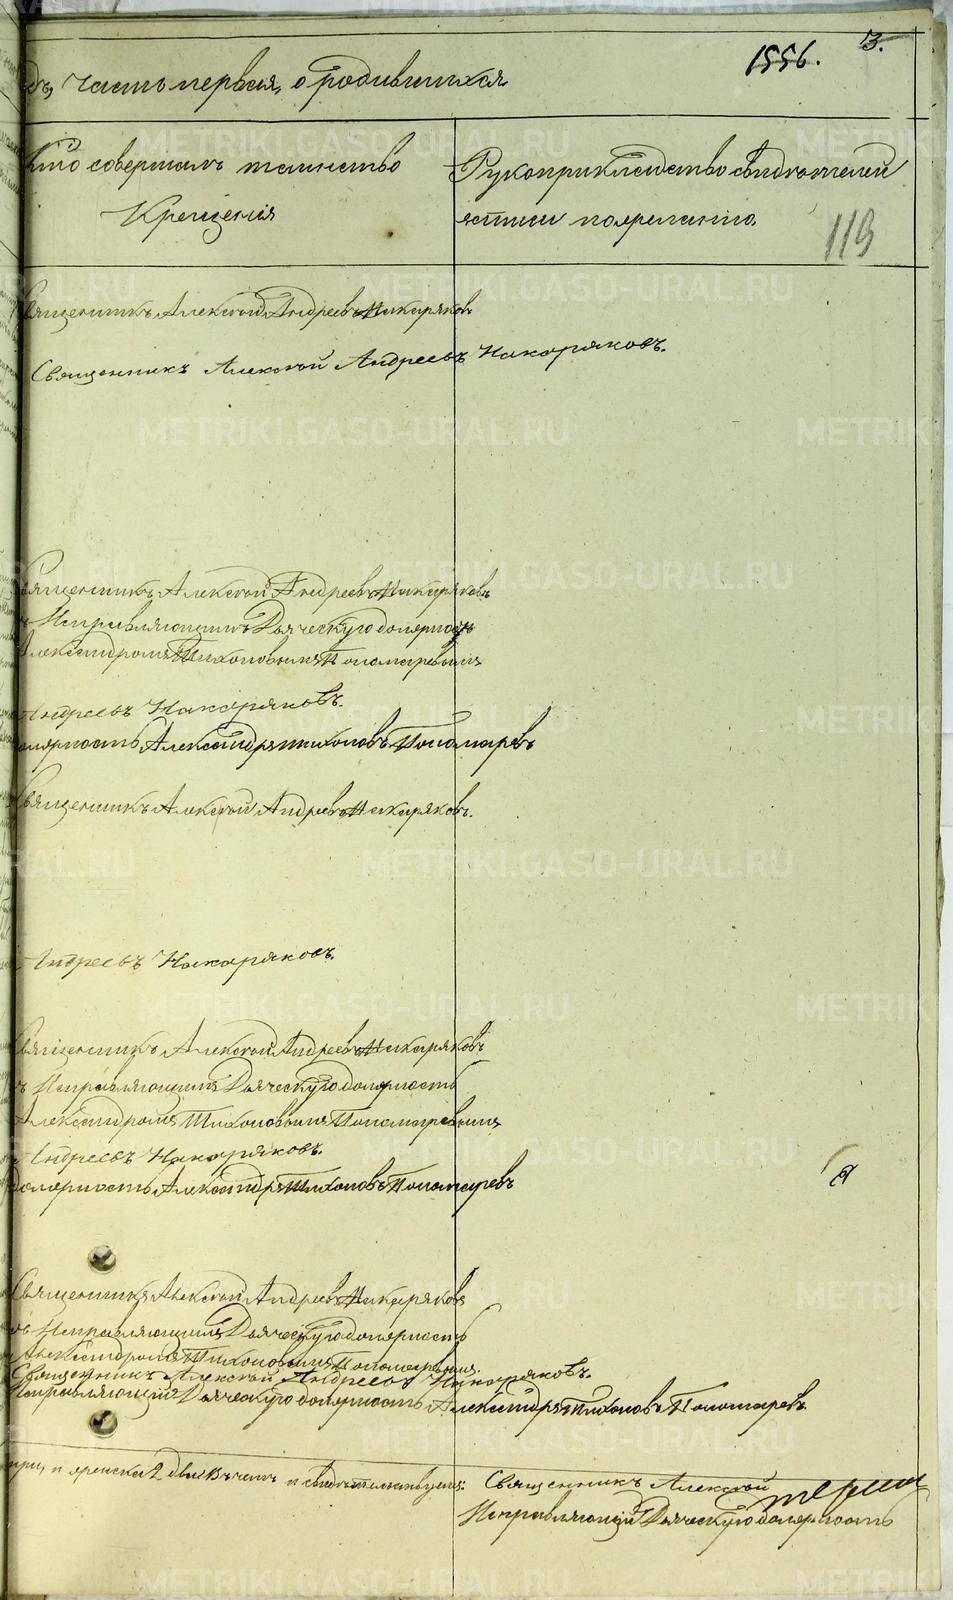 1556. 3.
дъ, часть первая, о родившихся
Кто совершалъ таинство
Крещенія
Рукоприкладство свидетелей
записи по желанію.
119
Священникъ Алексѣй Андреевъ Накаряковъ
Священникъ Алексѣй Андреевъ Накаряковъ.
Священникъ Алексѣй Андреевъ Накаряковъ
съ Исправляющимъ Дьяческую должность
Александромъ Тихоновымъ Пономаревымъ
Андреевъ Накаряковъ.
должность Александръ Тихоновъ Пономаревъ
Священникъ Алексѣй Андреевъ Накаряковъ.
Андреевъ Накаряковъ.
Священникъ Алексѣй Андреевъ Накаряковъ
съ Исправляющимъ Дьяческую должность
Александромъ Тихоновымъ Пономаревымъ
Андреевъ Накаряковъ.
должность Александръ Тихоновъ Пономаревъ
Священникъ Алексѣй Андреевъ Накаряковъ
съ Исправляющимъ Дьяческую должность
Александромъ Тихоновымъ Пономаревымъ.
Священникъ Алексѣй Андреевъ Накаряковъ.
Исправляющій Дьяческую должность Александръ Тихоновъ Пономаревъ
женска 2 два въ чемъ и свидѣтельствуемъ: Священникъ Алексѣй
Исправляющій Дьяческую должность
METRIKI.GASO-URAL.RU